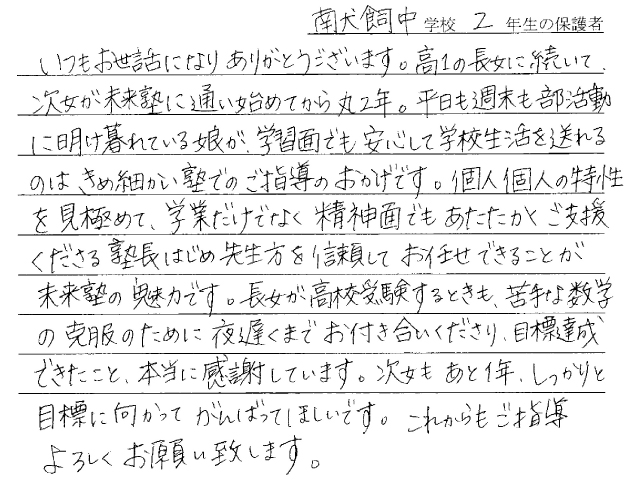 南犬飼中学校 2 年生の保護者
いつもお世話になりありがとうございます。高1の長女に続いて、
次女が未来塾に通い始めてから丸2年。平日も週末も部活動
に明け暮れている娘が、学習面でも安心して学校生活を送れる
のはきめ細かい塾でのご指導のおかげです。個人個人の特性
を見極めて、学業だけでなく精神面でもあたたかくご支援
くださる塾長はじめ先生方を信頼してお任せできることが
未来塾の魅力です。長女が高校受験するときも、苦手な数学
の克服のために夜遅くまでお付き合いくださり、目標達成
できたこと、本当に感謝しています。次女もあと1年、しっかりと
目標に向かってがんばってほしいです。これからもご指導
よろしくお願い致します。